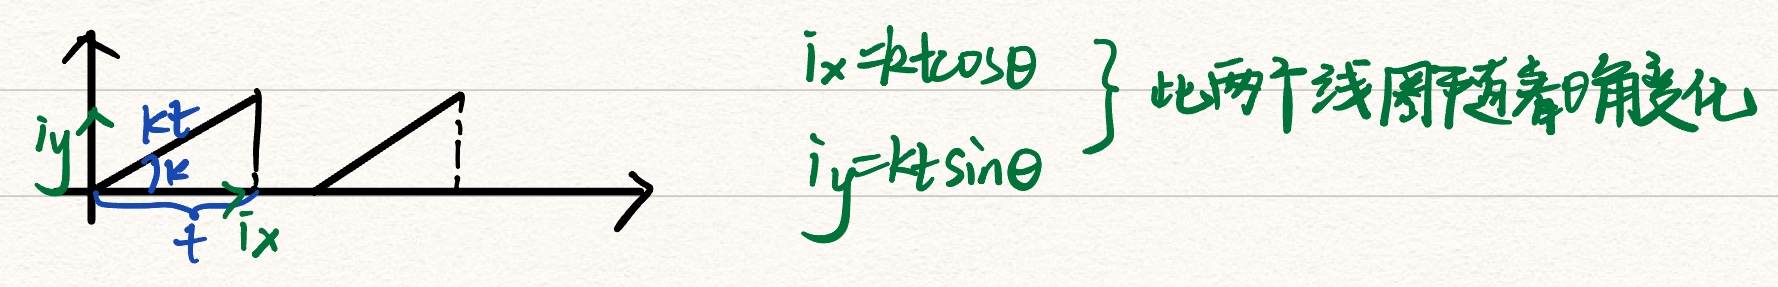 iy
kt
k
t
ix
ix=ktcosθ
iy=ktsinθ
此两个线圈随着θ角变化